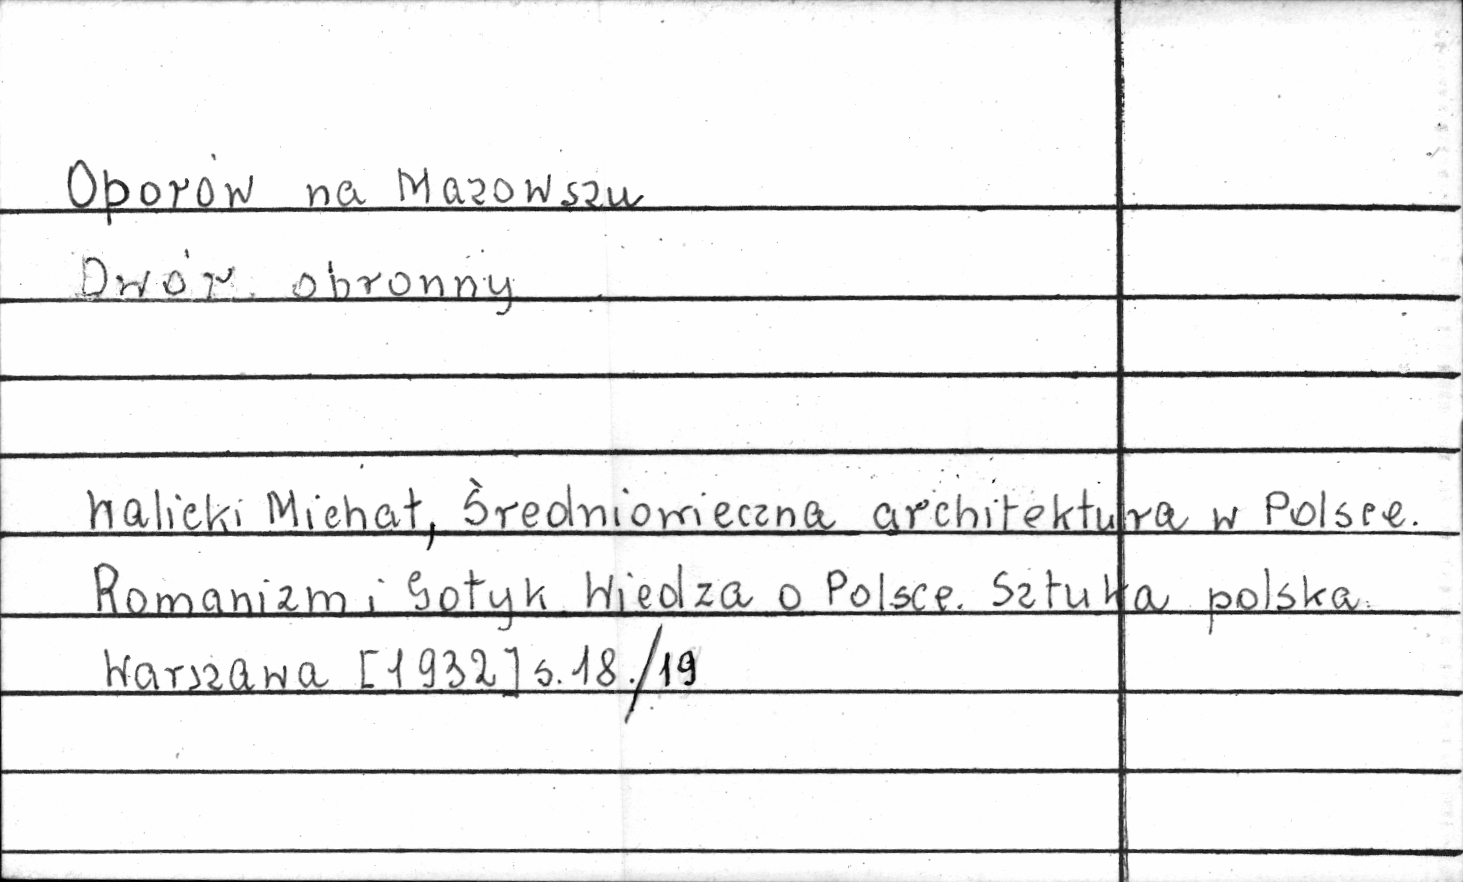 Oporów na Mazowszu
Dwór obronny
Walicki Michał, Średniowieczna architektura w Polsce.
Romanizm i Gotyk Wiedza o Polsce. Sztuka polska.
Warszawa [1932] s. 18./19